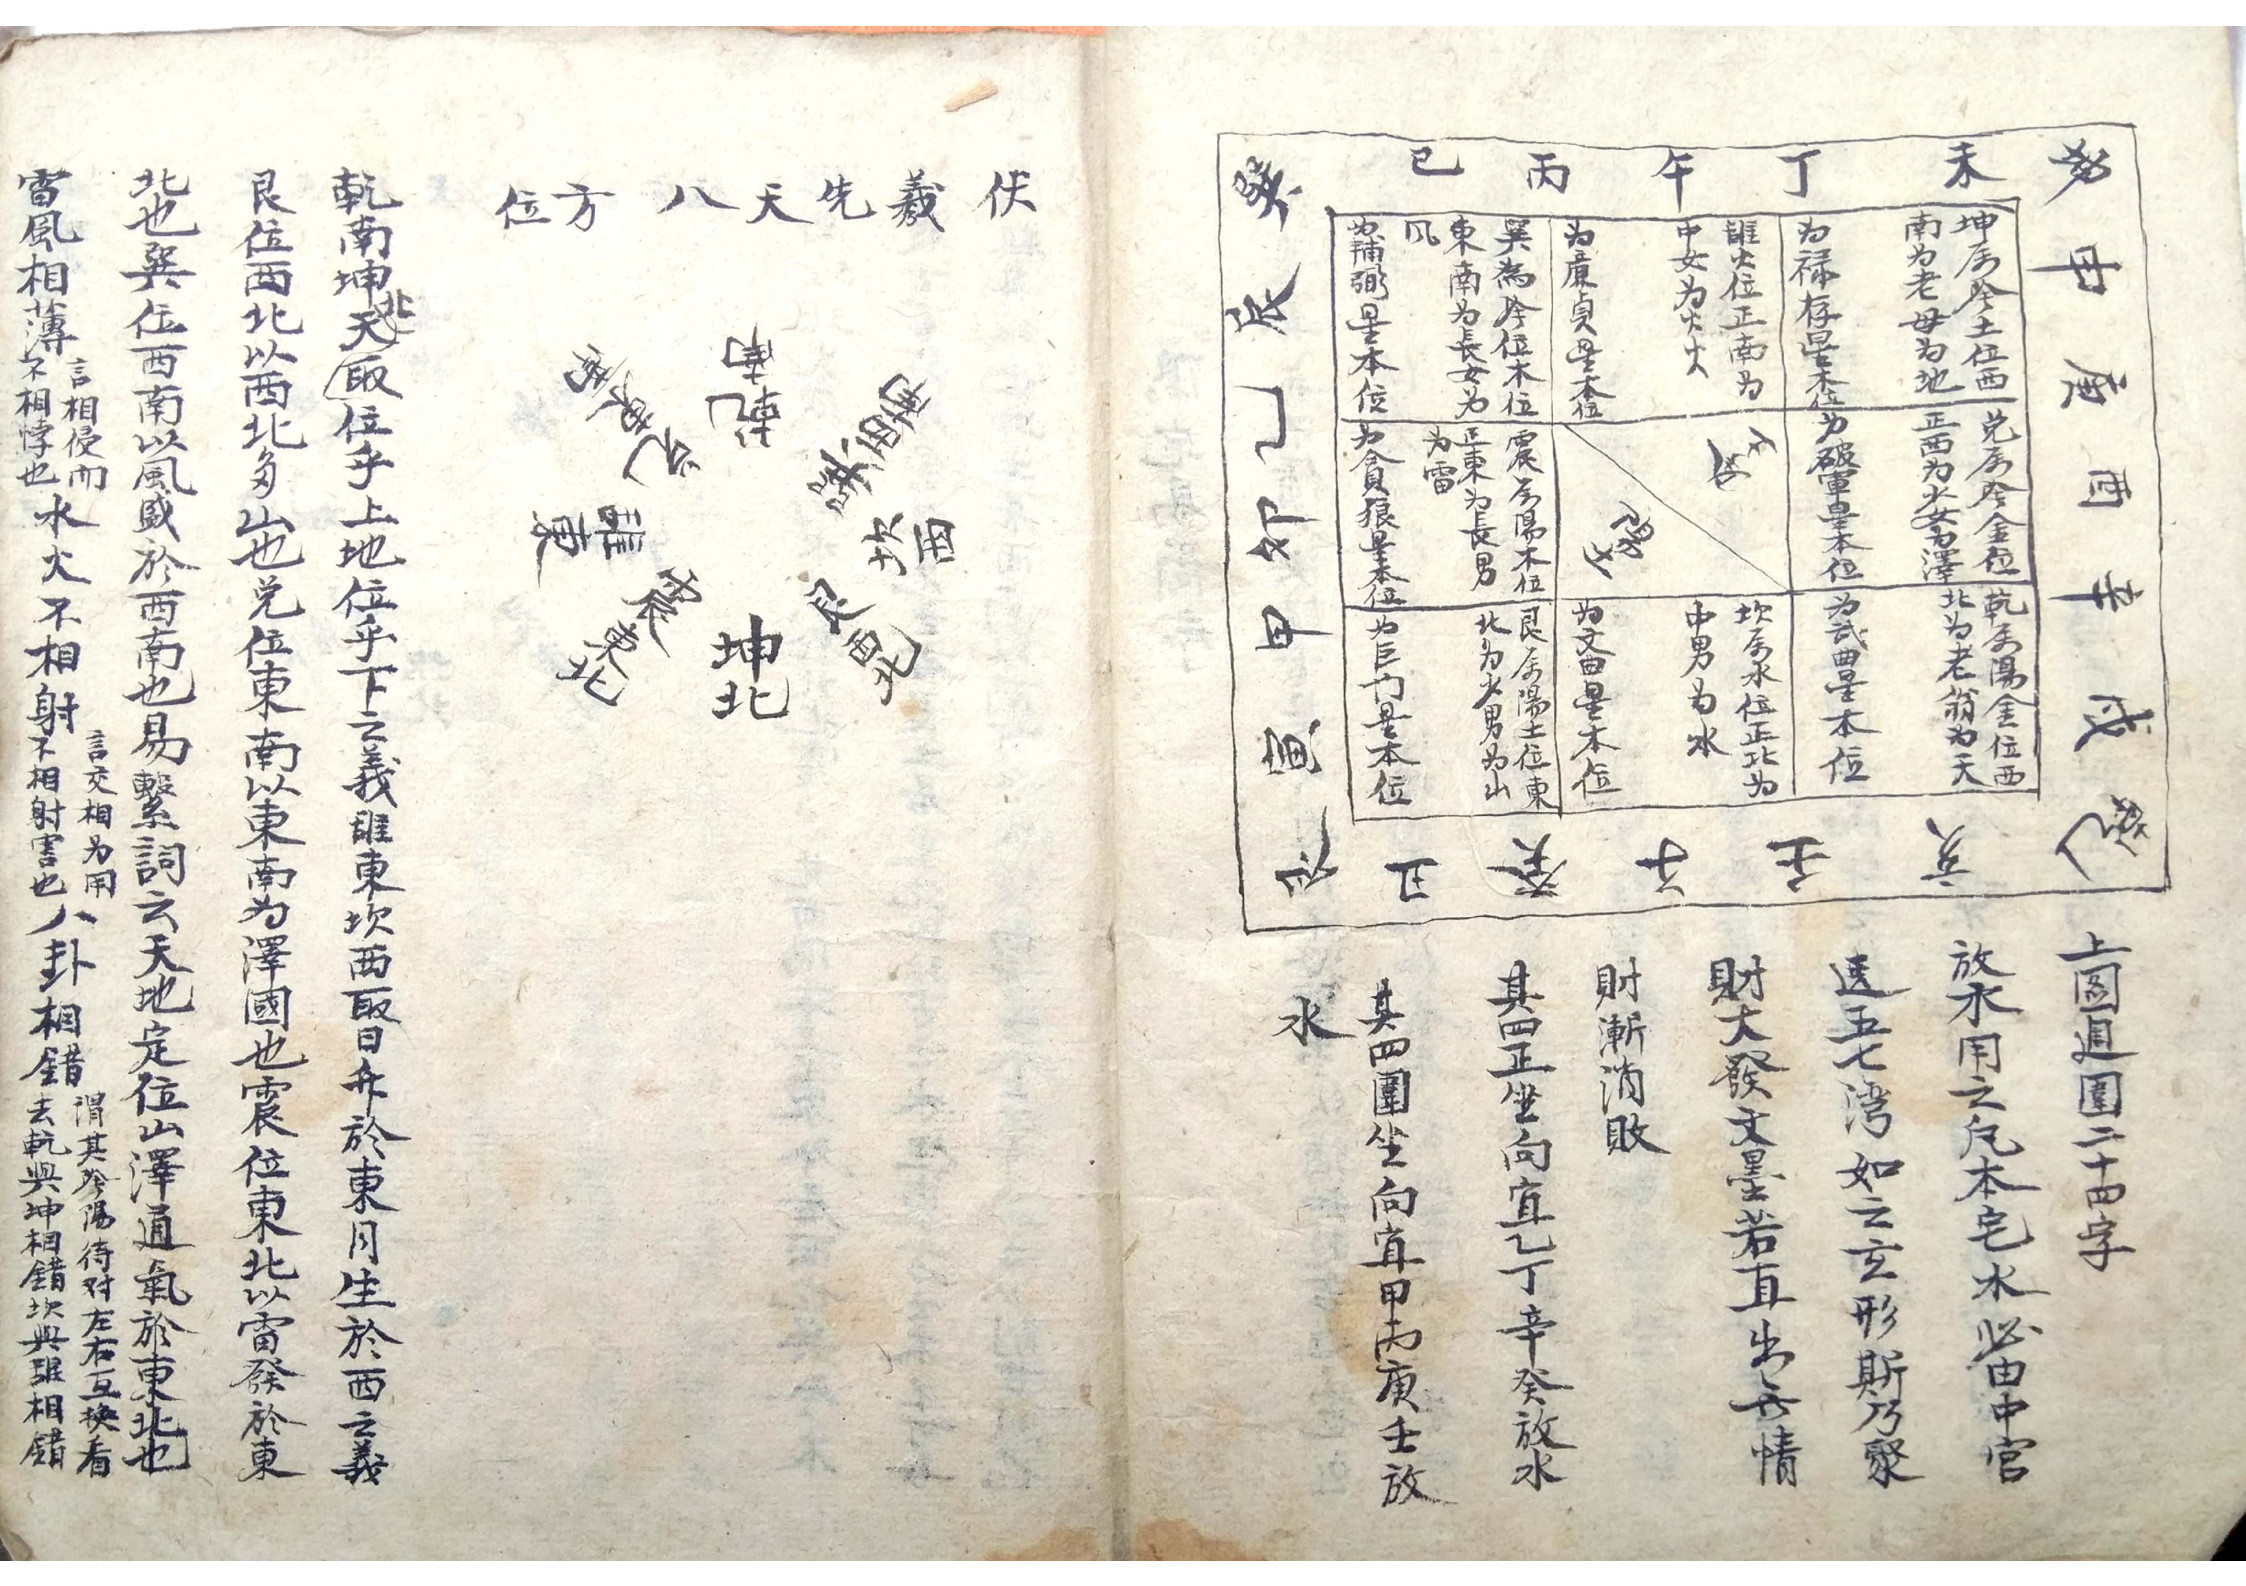 巳 丙 午 丁 未
坤
申 庚 酉 辛 戌
乾
亥 壬 子 癸 丑
艮
寅 甲 卯 乙 辰
巽
坤属阴土位西
南为老母为地
为禄存星本位
離火位正南为
中女为火火
为廉貞星本位
巽為阴位木位
東南为長女为
风
为輔弼星本位
兑属阴金位
正西为少女为澤
为破軍星本位
震属陽木位
正東为長男
为雷
为貪狼星本位
乾属陽金位西
北为老翁为天
为武曲星本位
坎属水位正北为
中男为水
为文曲星本位
艮属陽土位東
北为少男为山
为巨门星本位
上圖週圍二十四字
放水用之凢本宅水必由中宫
送五七湾如之玄形斯乃聚
財大發文墨若直出无情
財漸消敗
其四正坐向宜乙丁辛癸放水
其四圍坐向宜甲丙庚壬放
水
伏羲先天八方位
乾南
巽西南
坎西
艮西北
坤北
震東北
離東
兑東南
乾南坤北天取位乎上地位乎下之義離東坎西取日升於東月生於西之義
艮位西北以西北多山也兑位東南以東南为澤國也震位東北以雷發於東
北也巽位西南以風盛於西南也易繫詞云天地定位山澤通氣於東北也
雷風相薄言相侵而不相悖也水火不相射言交相为用不相射害也八卦相錯謂其阴陽待对左右互换看去乾與坤相錯坎與離相錯